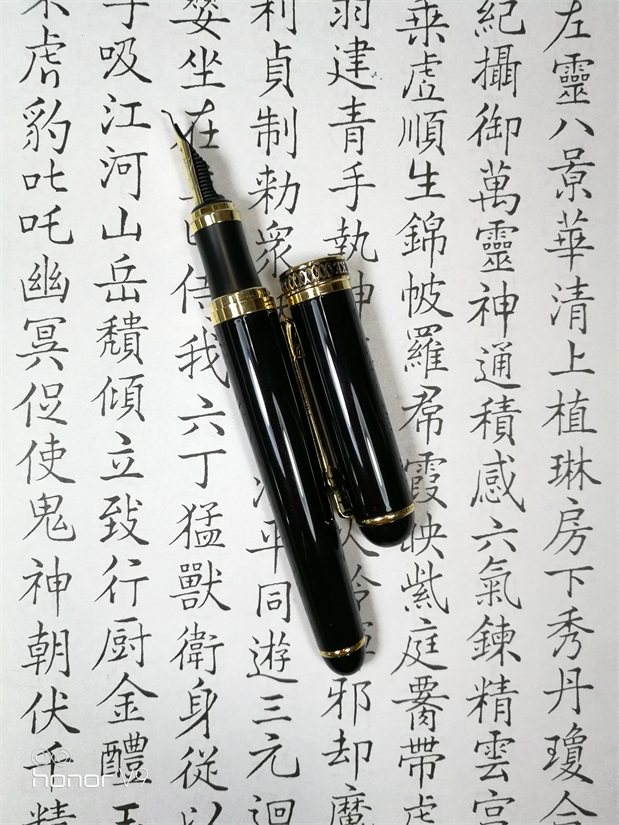 左靈八景華清上植琳房下秀丹瓊合
紀攝御萬靈神通積感六氣鍊精雲宮
乘虛順生錦帔羅帬霞映紫庭帶虎
羽建青手執神火邪却魔
利貞制勑眾平同遊三元迴
坐在侍我六丁猛獸衛身從以
子吸江河山岳穨傾立致行厨金醴玉
虎豹叱吒幽冥促使鬼神朝伏千精
honor V9